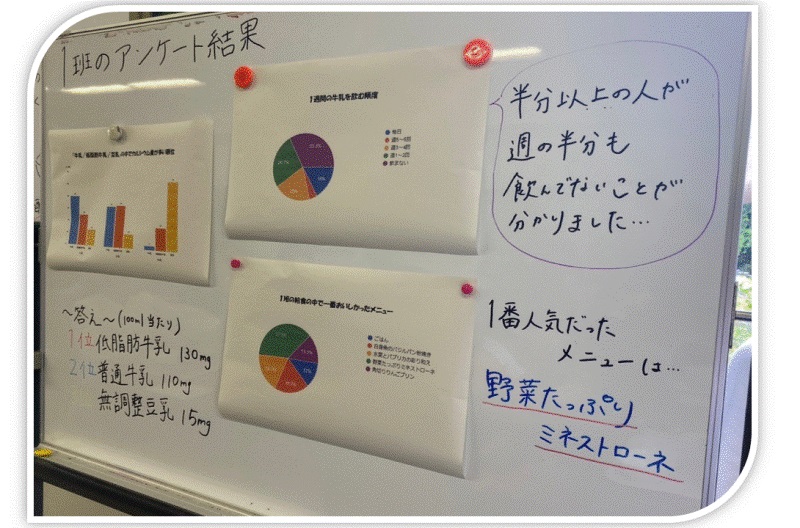 1班のアンケート結果
1週間の牛乳を飲む頻度
毎日
週5〜6回
週3〜4回
週1〜2回
飲まない
半分以上の人が
週の半分も
飲んでないことが
分かりました…
〜答え〜(100ml当たり)
1位 低脂肪牛乳 130mg
2位 普通牛乳 110mg
無調整豆乳 15mg
1班の給食の中で一番おいしかったメニュー
ごはん
野菜たっぷりミネストローネ
角切りりんごプリン
1番人気だった
メニューは…
野菜たっぷり
ミネストローネ